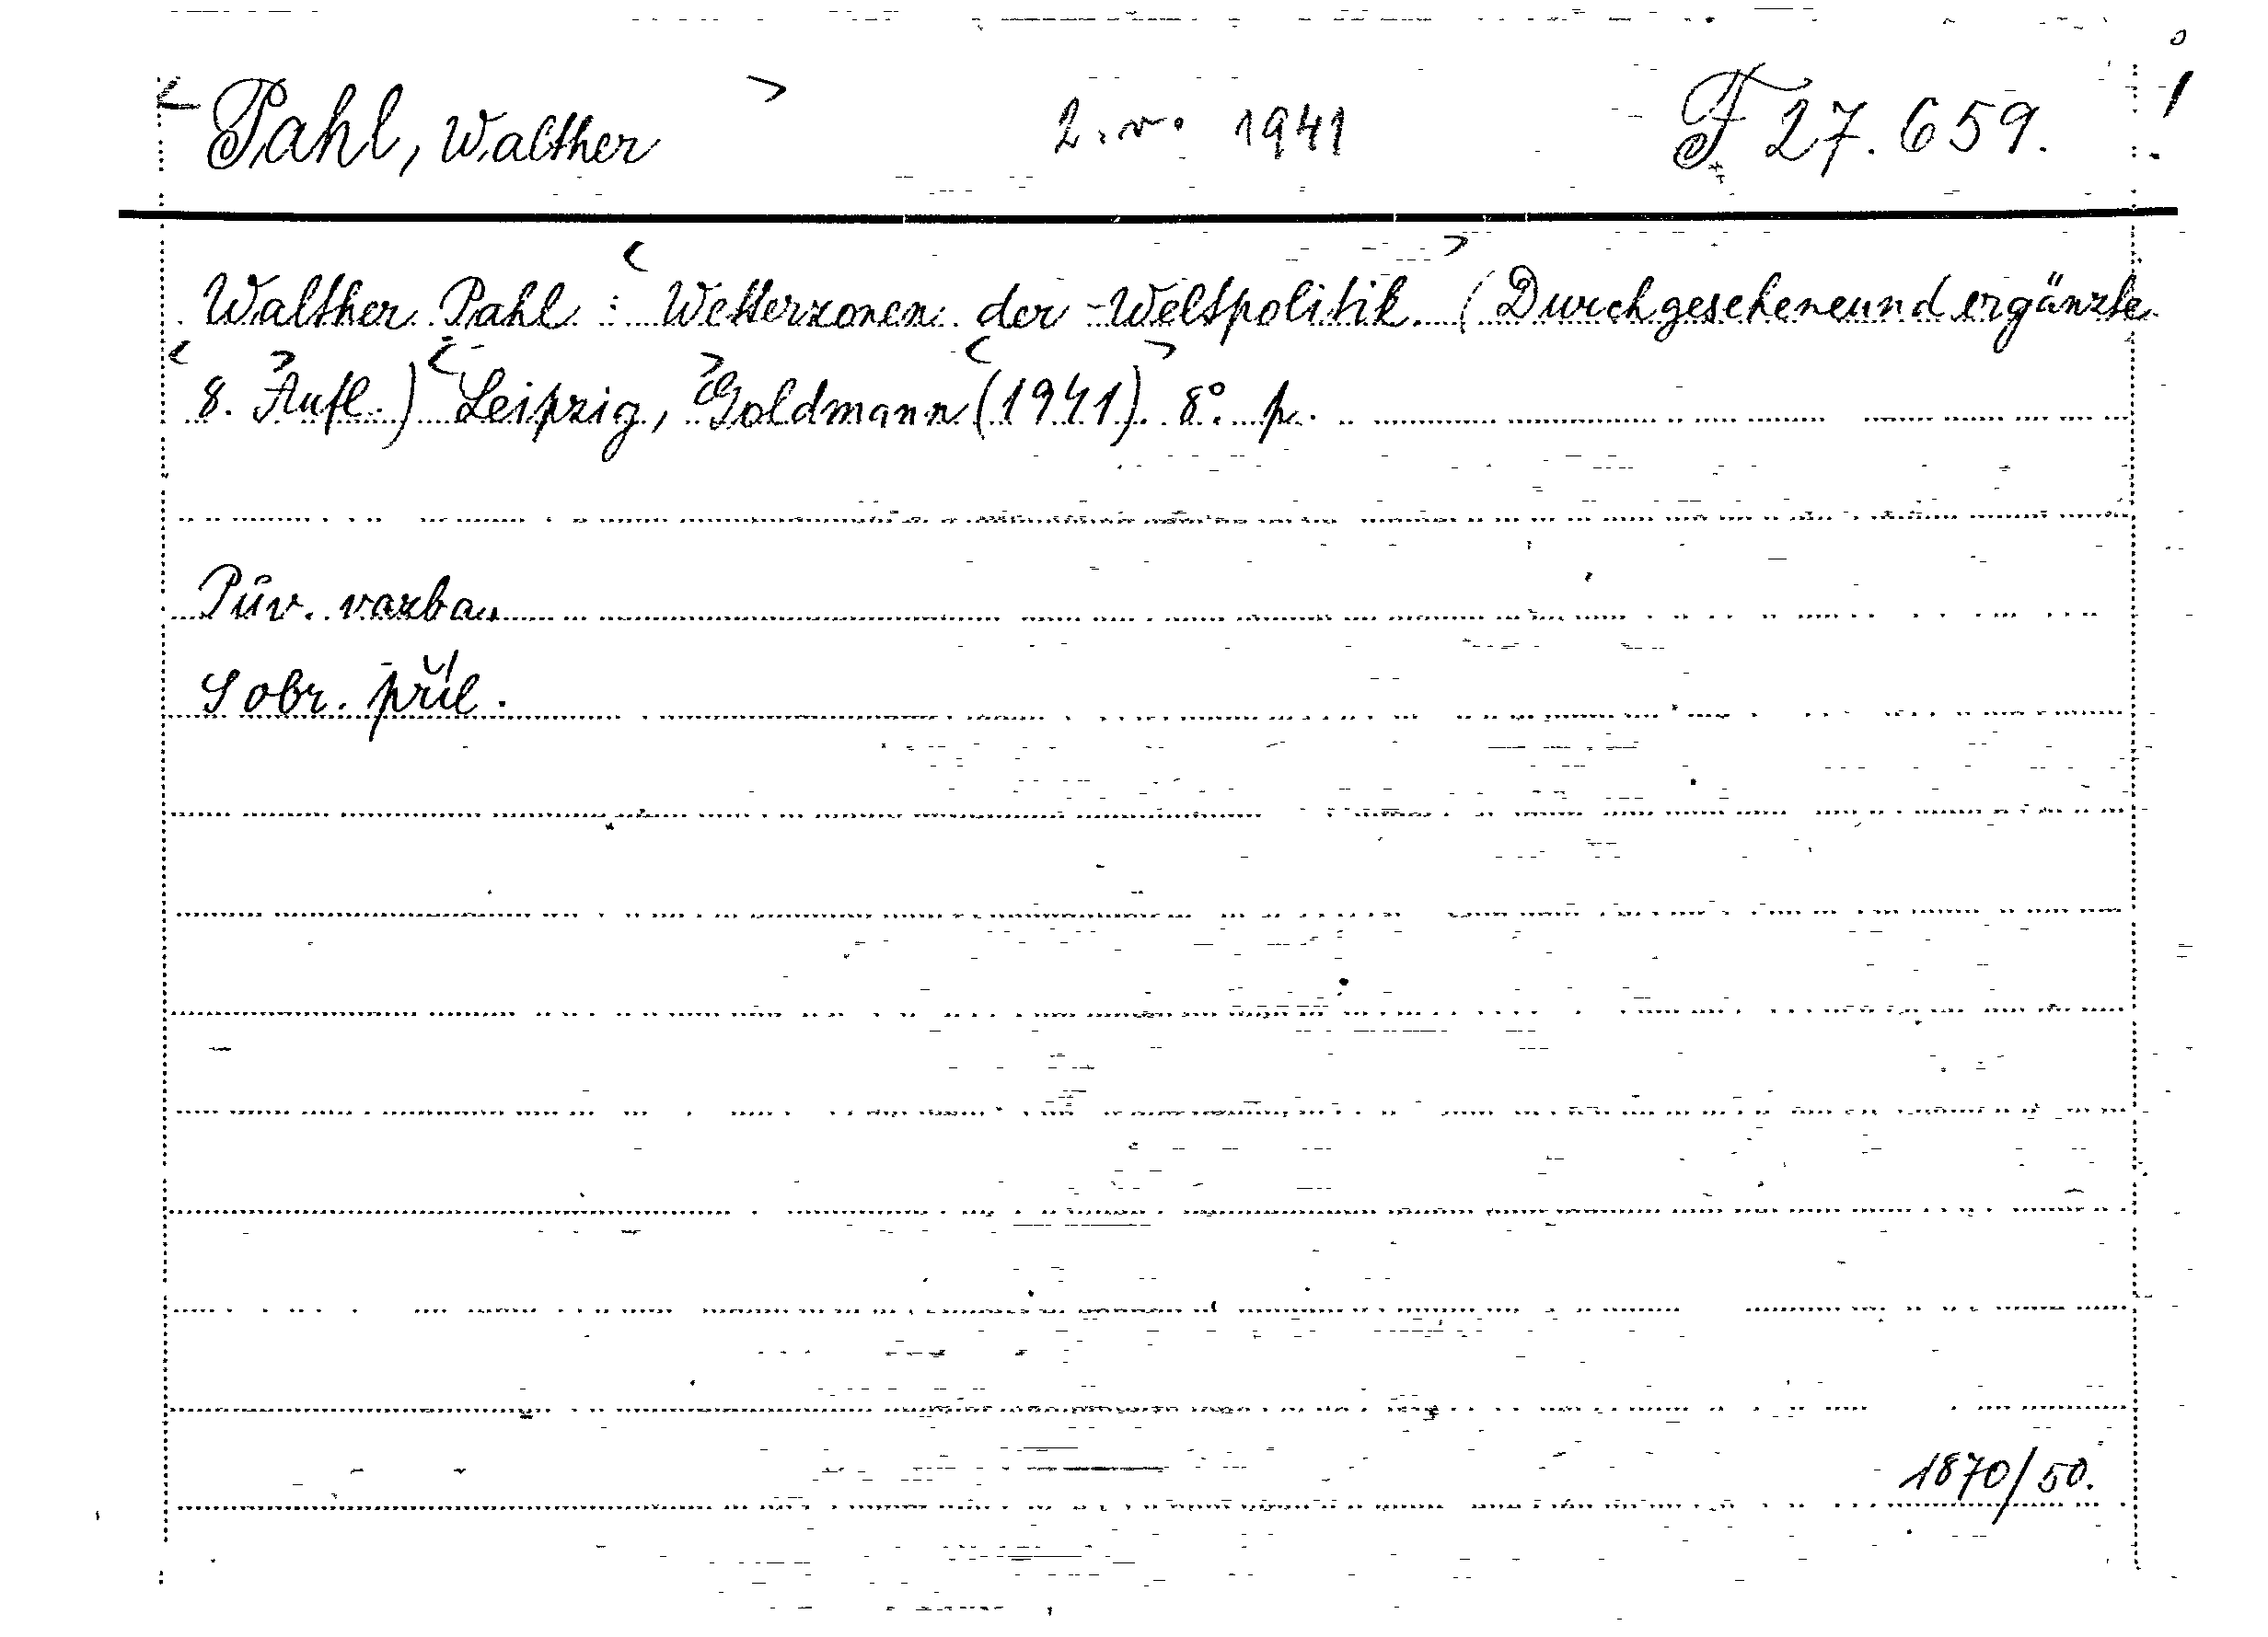 Pahl, Walther 2. v. 1941 F 27.659.
Walther Pahl : Wetterzonen der Weltpolitik. (Durchgesehene und ergänzte
8. Aufl.) Leipzig, Goldmann (1941). 8° p.
Pův. vazba.
S obr. příl.
1870/50.